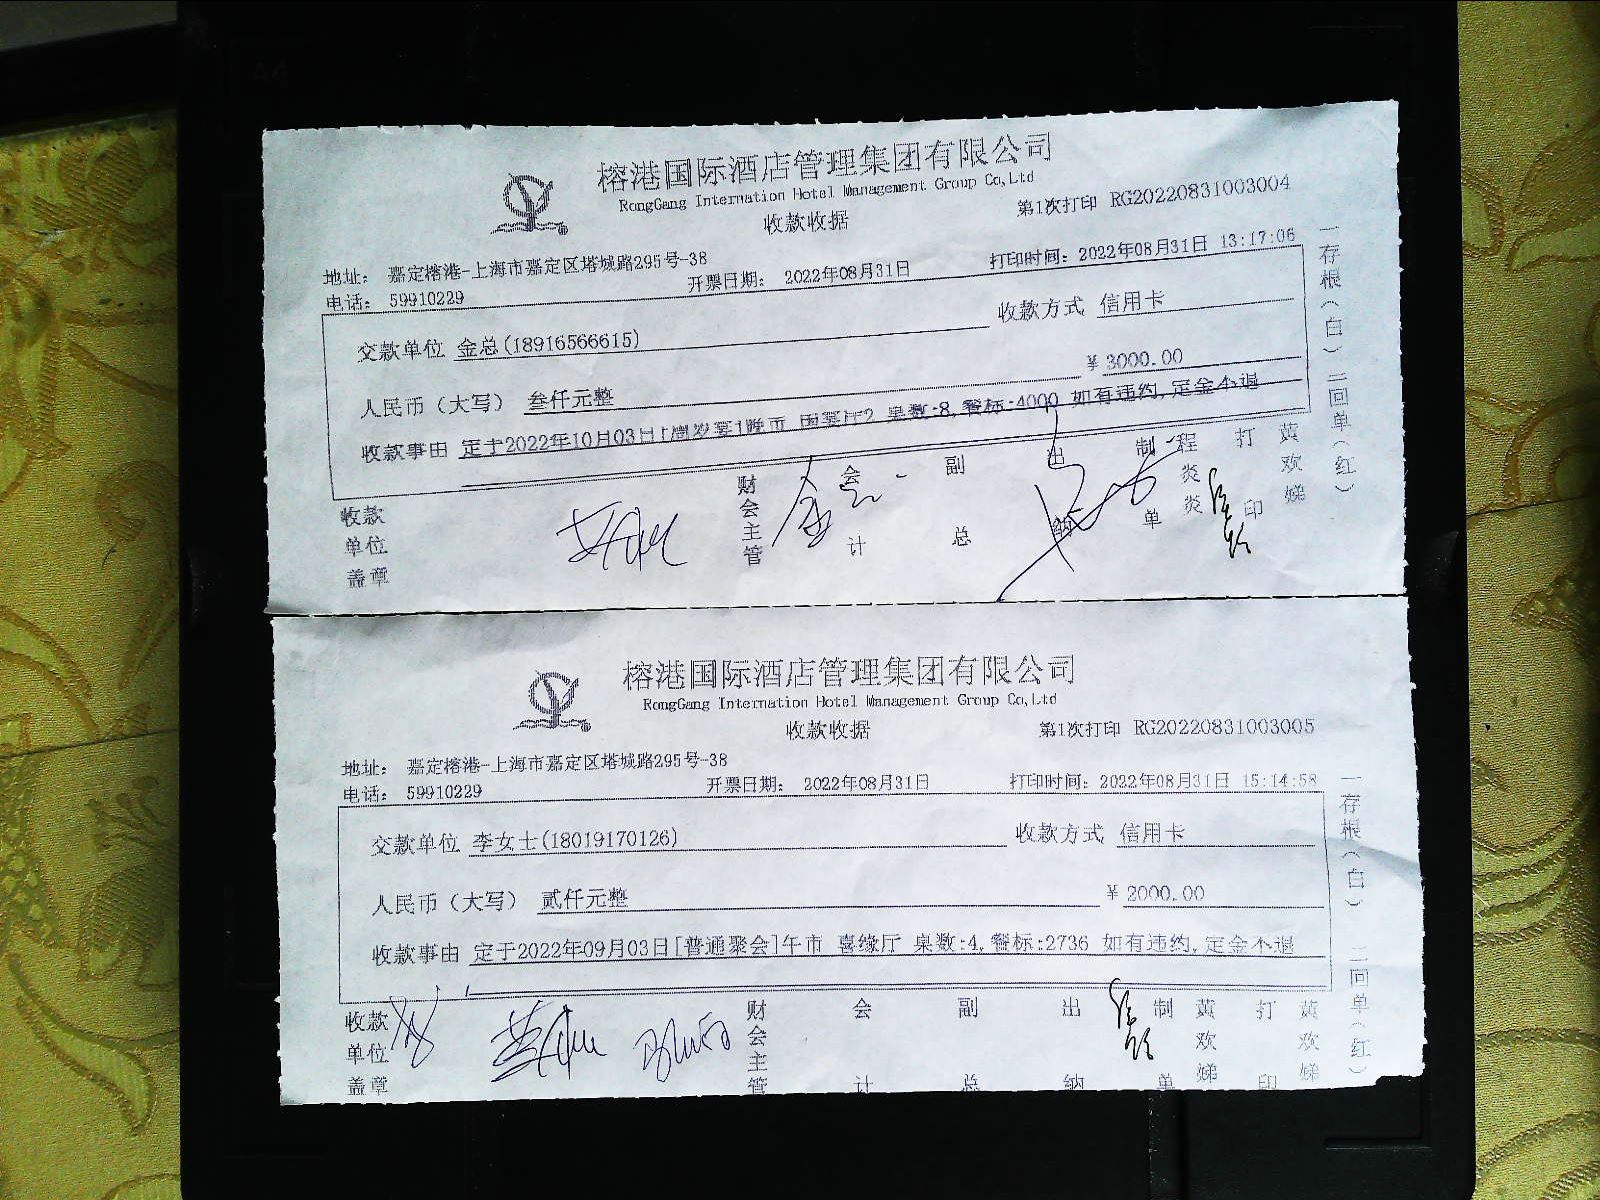 榕港国际酒店管理集团有限公司
RongGang Internation Hotel Management Group Co,Ltd
收款收据
第1次打印 RG20220831003004
地址: 嘉定榕港-上海市嘉定区塔城路295号-38
电话: 59910229 开票日期: 2022年08月31日 打印时间: 2022年08月31日 13:17:06
交款单位 金总(18916566615) 收款方式 信用卡
人民币（大写） 叁仟元整 ¥ 3000.00
收款事由 定于2022年10月03日[周岁宴]晚市 桌数:8,餐标:4000 如有违约,定金不退
收款单位盖章 财会主管 会计 副总 出纳 制单 程炎炎 打印 黄欢娣
一存根(白) 二回单(红)
榕港国际酒店管理集团有限公司
RongGang Internation Hotel Management Group Co,Ltd
收款收据
第1次打印 RG20220831003005
地址: 嘉定榕港-上海市嘉定区塔城路295号-38
电话: 59910229 开票日期: 2022年08月31日 打印时间: 2022年08月31日 15:14:58
交款单位 李女士(18019170126) 收款方式 信用卡
人民币（大写） 贰仟元整 ¥ 2000.00
收款事由 定于2022年09月03日[普通聚会]午市 喜缘厅 桌数:4,餐标:2736 如有违约,定金不退
收款单位盖章 财会主管 会计 副总 出纳 制单 黄欢娣 打印 黄欢娣
一存根(白) 二回单(红)